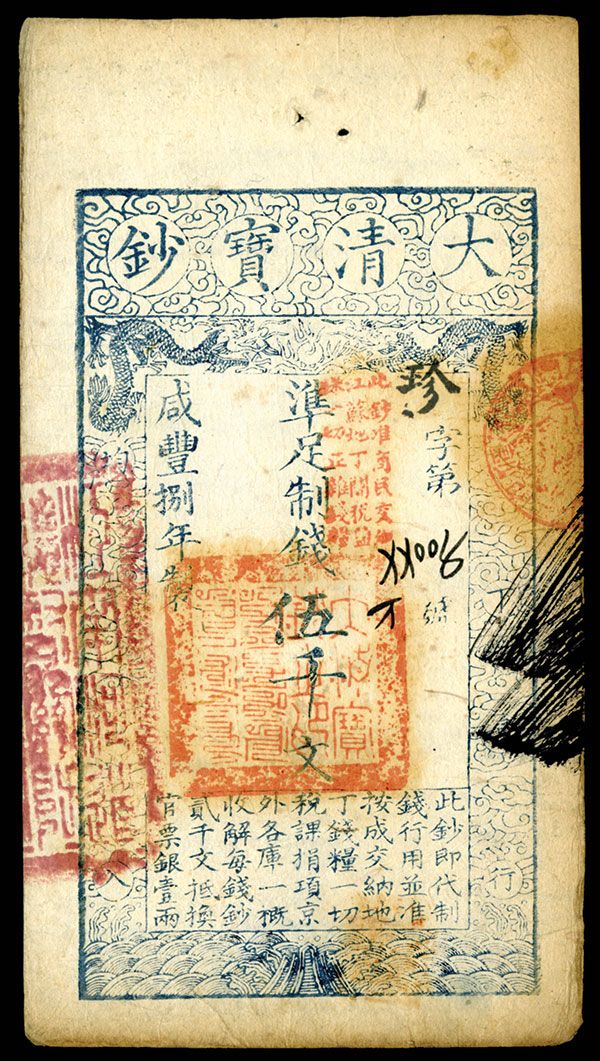 大清寶鈔
珍字第
號
準足制錢伍千文
咸豐捌年製
此鈔准商民交
江蘇地丁關稅
下
行
均
入
此鈔即代制
錢行用並准
按成交納地
丁錢糧一切
稅課捐項京
外各庫一概
收解每錢鈔
貳千文抵換
官票銀壹兩